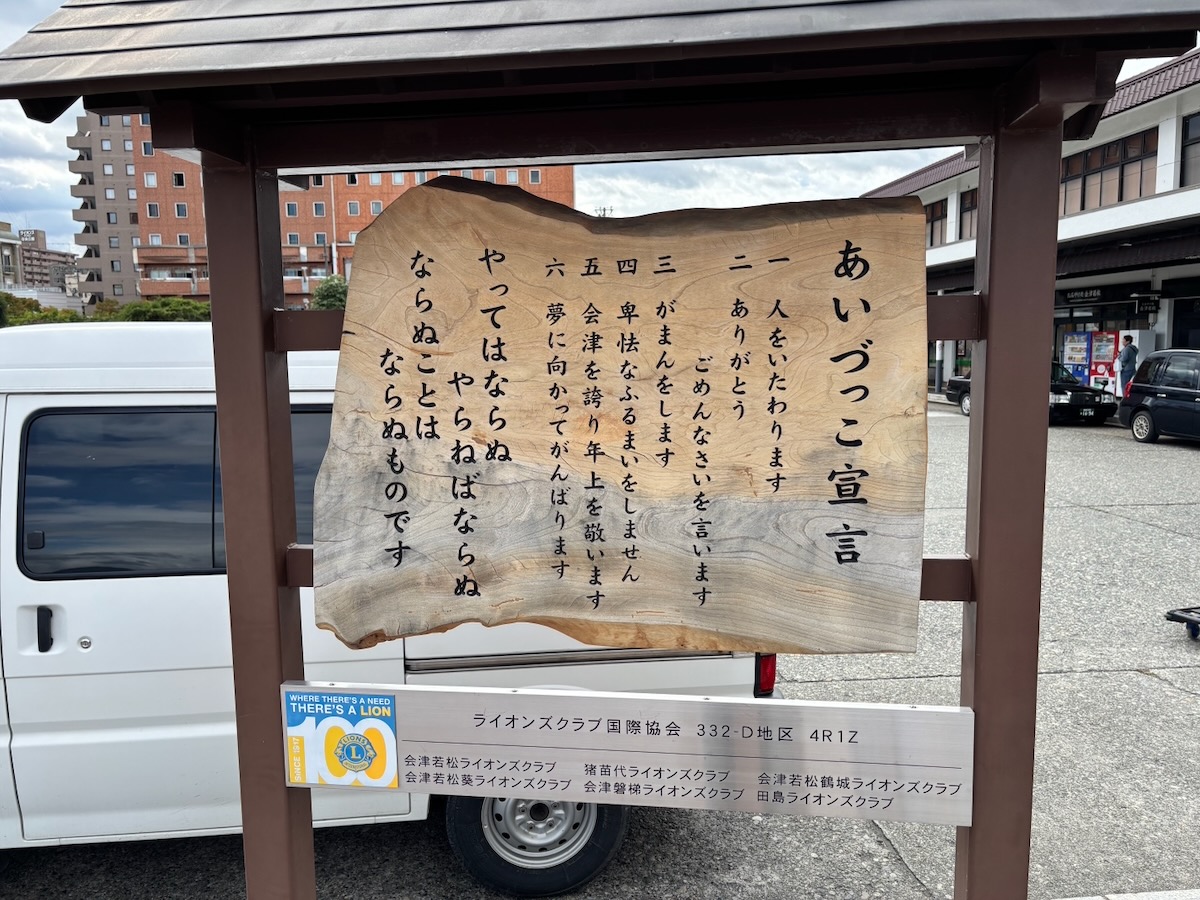 あいづっこ宣言
一 人をいたわります
二 ありがとう
ごめんなさいを言います
三 がまんをします
四 卑怯なふるまいをしません
五 会津を誇り年上を敬います
六 夢に向かってがんばります
やってはならぬ
やらねばならぬ
ならぬことは
ならぬものです
WHERE THERE'S A NEED
THERE'S A LION
SINCE 1917
100
LIONS
L
ライオンズクラブ国際協会 332-D地区 4R1Z
会津若松ライオンズクラブ 猪苗代ライオンズクラブ 会津若松鶴城ライオンズクラブ
会津若松葵ライオンズクラブ 会津磐梯ライオンズクラブ 田島ライオンズクラブ